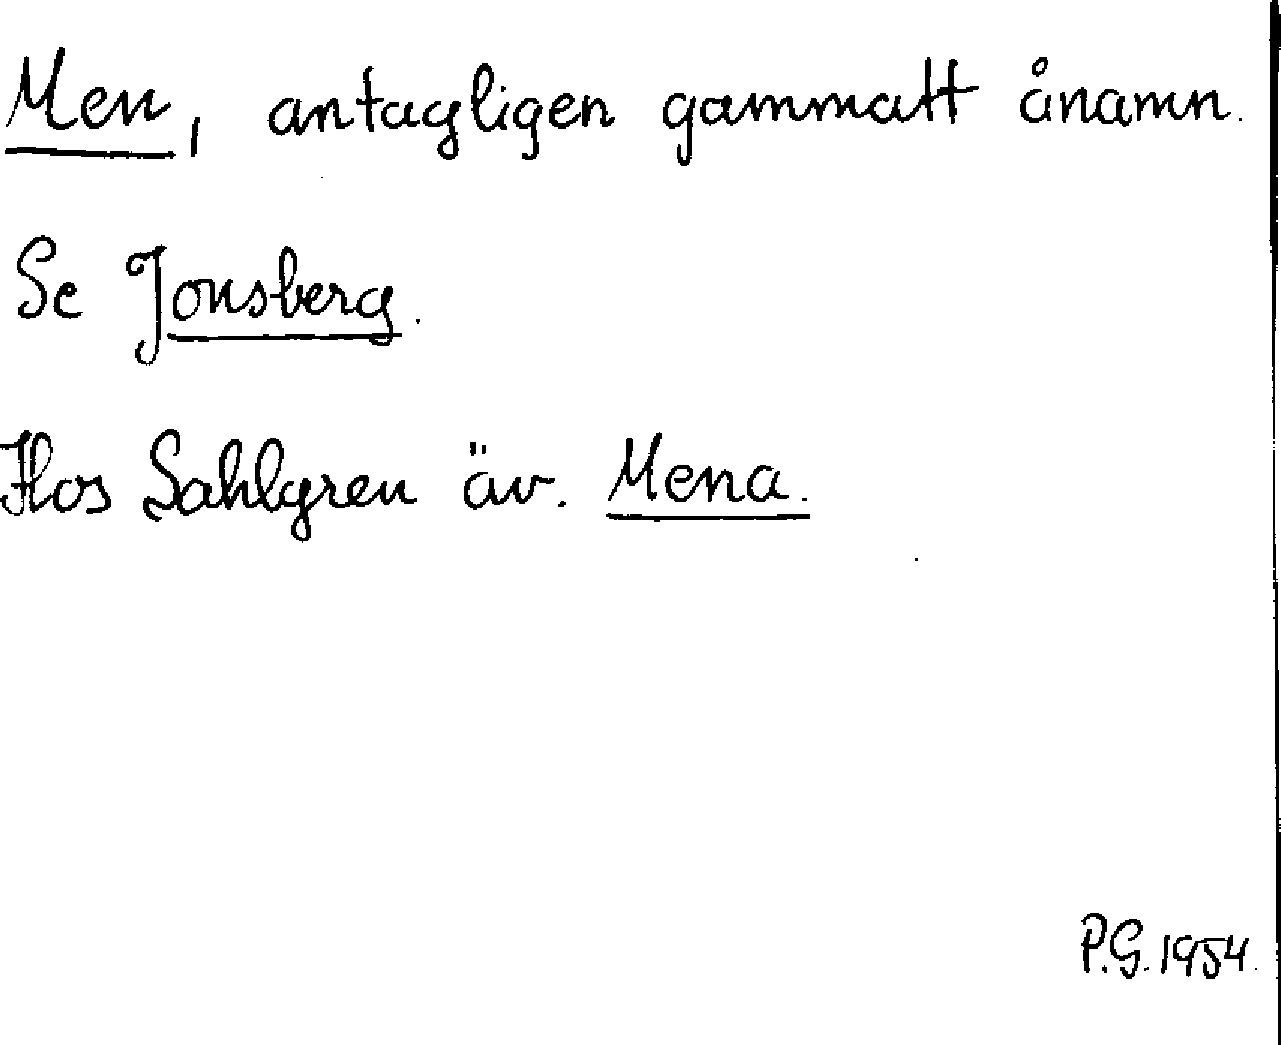 Men, antagligen gammalt ånamn.
Se Jonsberg.
Hos Sahlgren äv. Mena.
P.G. 1954.